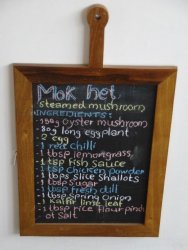 Mok het
steamed mushroom
INGREDIENTS:
- 150g oyster mushroom
- 80g long eggplant
- 2 egg
- 1 red chilli
- 1 tbsp lemongrass
- 1 tbsp fish sauce
- 1 tbsp chicken powder
- 1 tbps slice shallots
- 1 tbsp sugar
- 1 tbsp fresh dill
- 1 tbps spring onion
- 1 kaffir lime leaf
- 1 tbps rice flour pinds
of salt